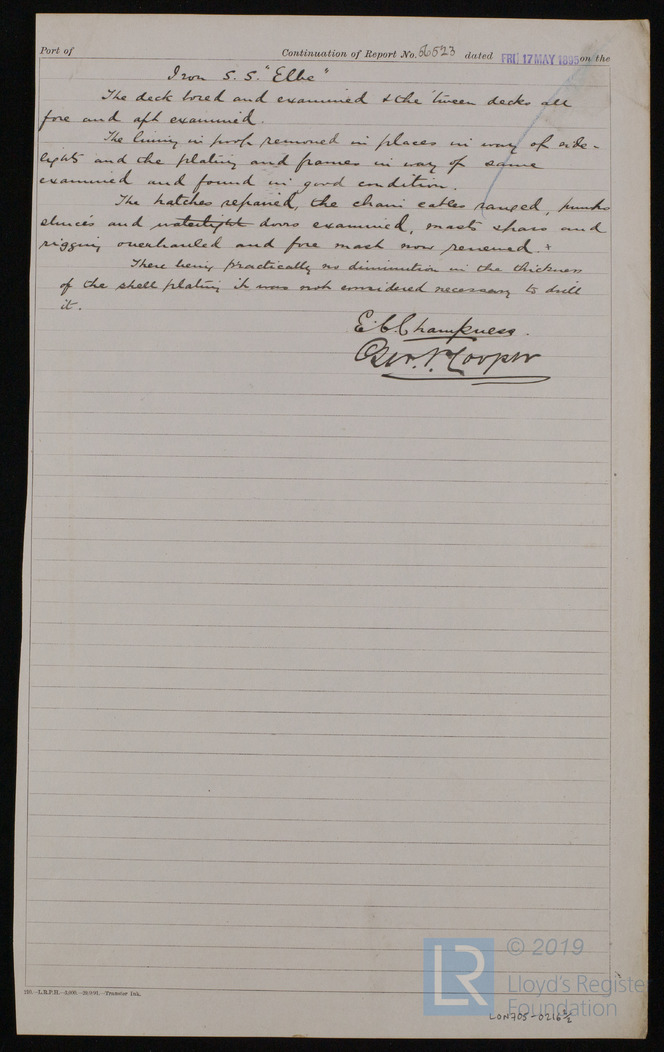 Port of Continuation of Report No. 56523 dated FRI. 17 MAY 1895 on the
Iron S.S. "Elbe"
The deck bored and examined & the 'tween decks all
fore and aft examined.
The lining in poop removed in places in way of side-
lights and the plating and frames in way of same
examined and found in good condition.
The hatches repaired, the chain cables ranged, pumps
sluices and watertight doors examined, masts spars and
rigging overhauled and fore mast now renewed. +
There being practically no diminution in the thickness
of the shell plating it was not considered necessary to drill
it.
E.C. Champness.
Geo. N. Cooper
210.—L.R.P.H.—3,000.—Transfer Ink.
LR
© 2019
Lloyd's Register
Foundation
LON705-0216